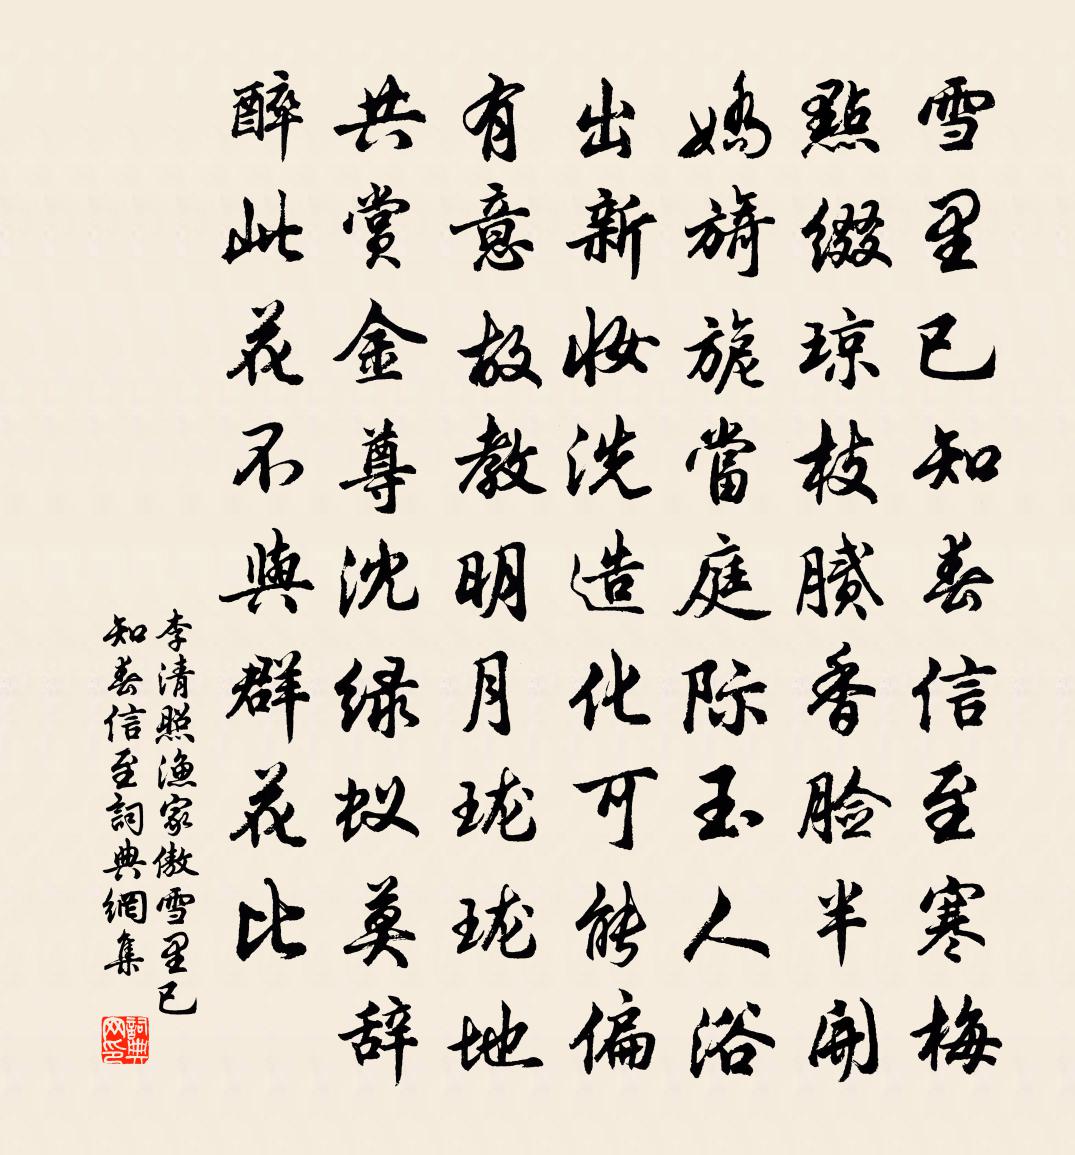 雪里已知春信至寒梅
點綴琼枝膩香脸半開
嬌旖旎當庭际玉人浴
出新妆洗造化可能偏
有意故教明月珑珑地
共赏金尊沈绿蚁莫辞
醉此花不與群花比
李清照渔家傲雪里已
知春信至詞典網集
詞典网印